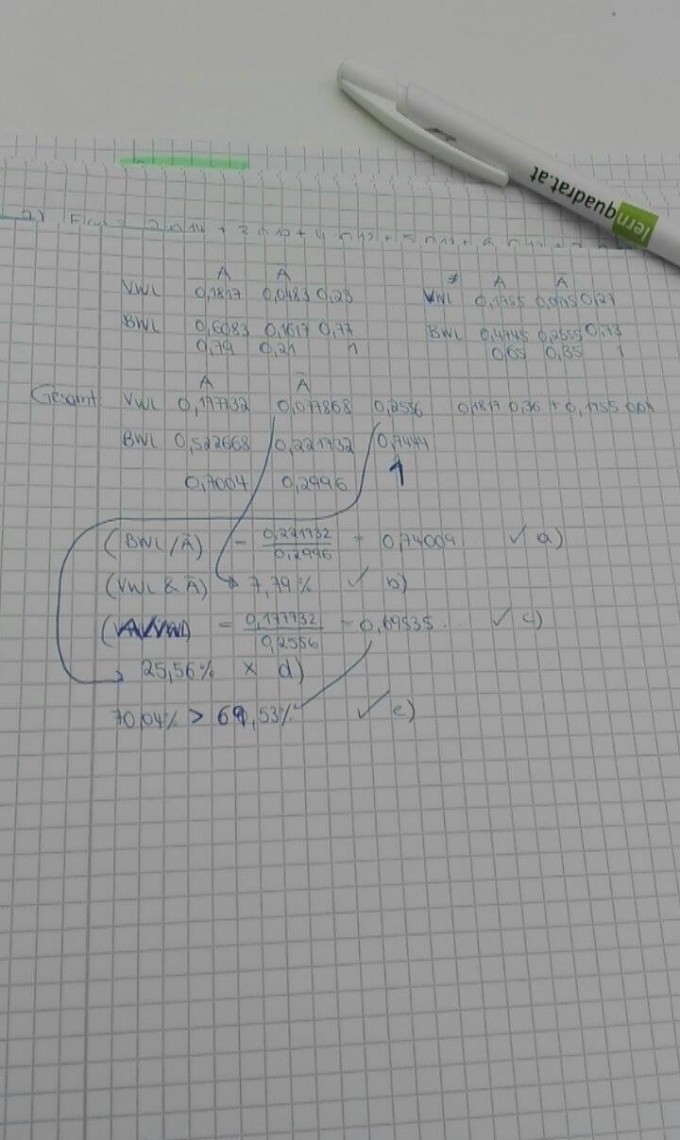 lernquadrat.at
2)
A Ā
VWL 0,1817 0,0483 0,23
BWL 0,6083 0,1617 0,77
0,79 0,21 1
A Ā
VWL 0,1755 0,27
BWL 0,4745 0,2555 0,73
0,65 0,35 1
Gesamt A Ā
VWL 0,177732 0,077868 0,2556 0,1817 0,36 + 0,1755
BWL 0,522668 0,221732 0,7444
0,7004 0,2996 1
(BWL/Ā) = 0,221732 / 0,2996 = 0,74009 ✓ a)
(VWL & Ā) → 7,79% ✓ b)
= 0,177732 / 0,2556 = 0,69535... ✓ c)
25,56% x d)
70,04% > 69,53% ✓ e)